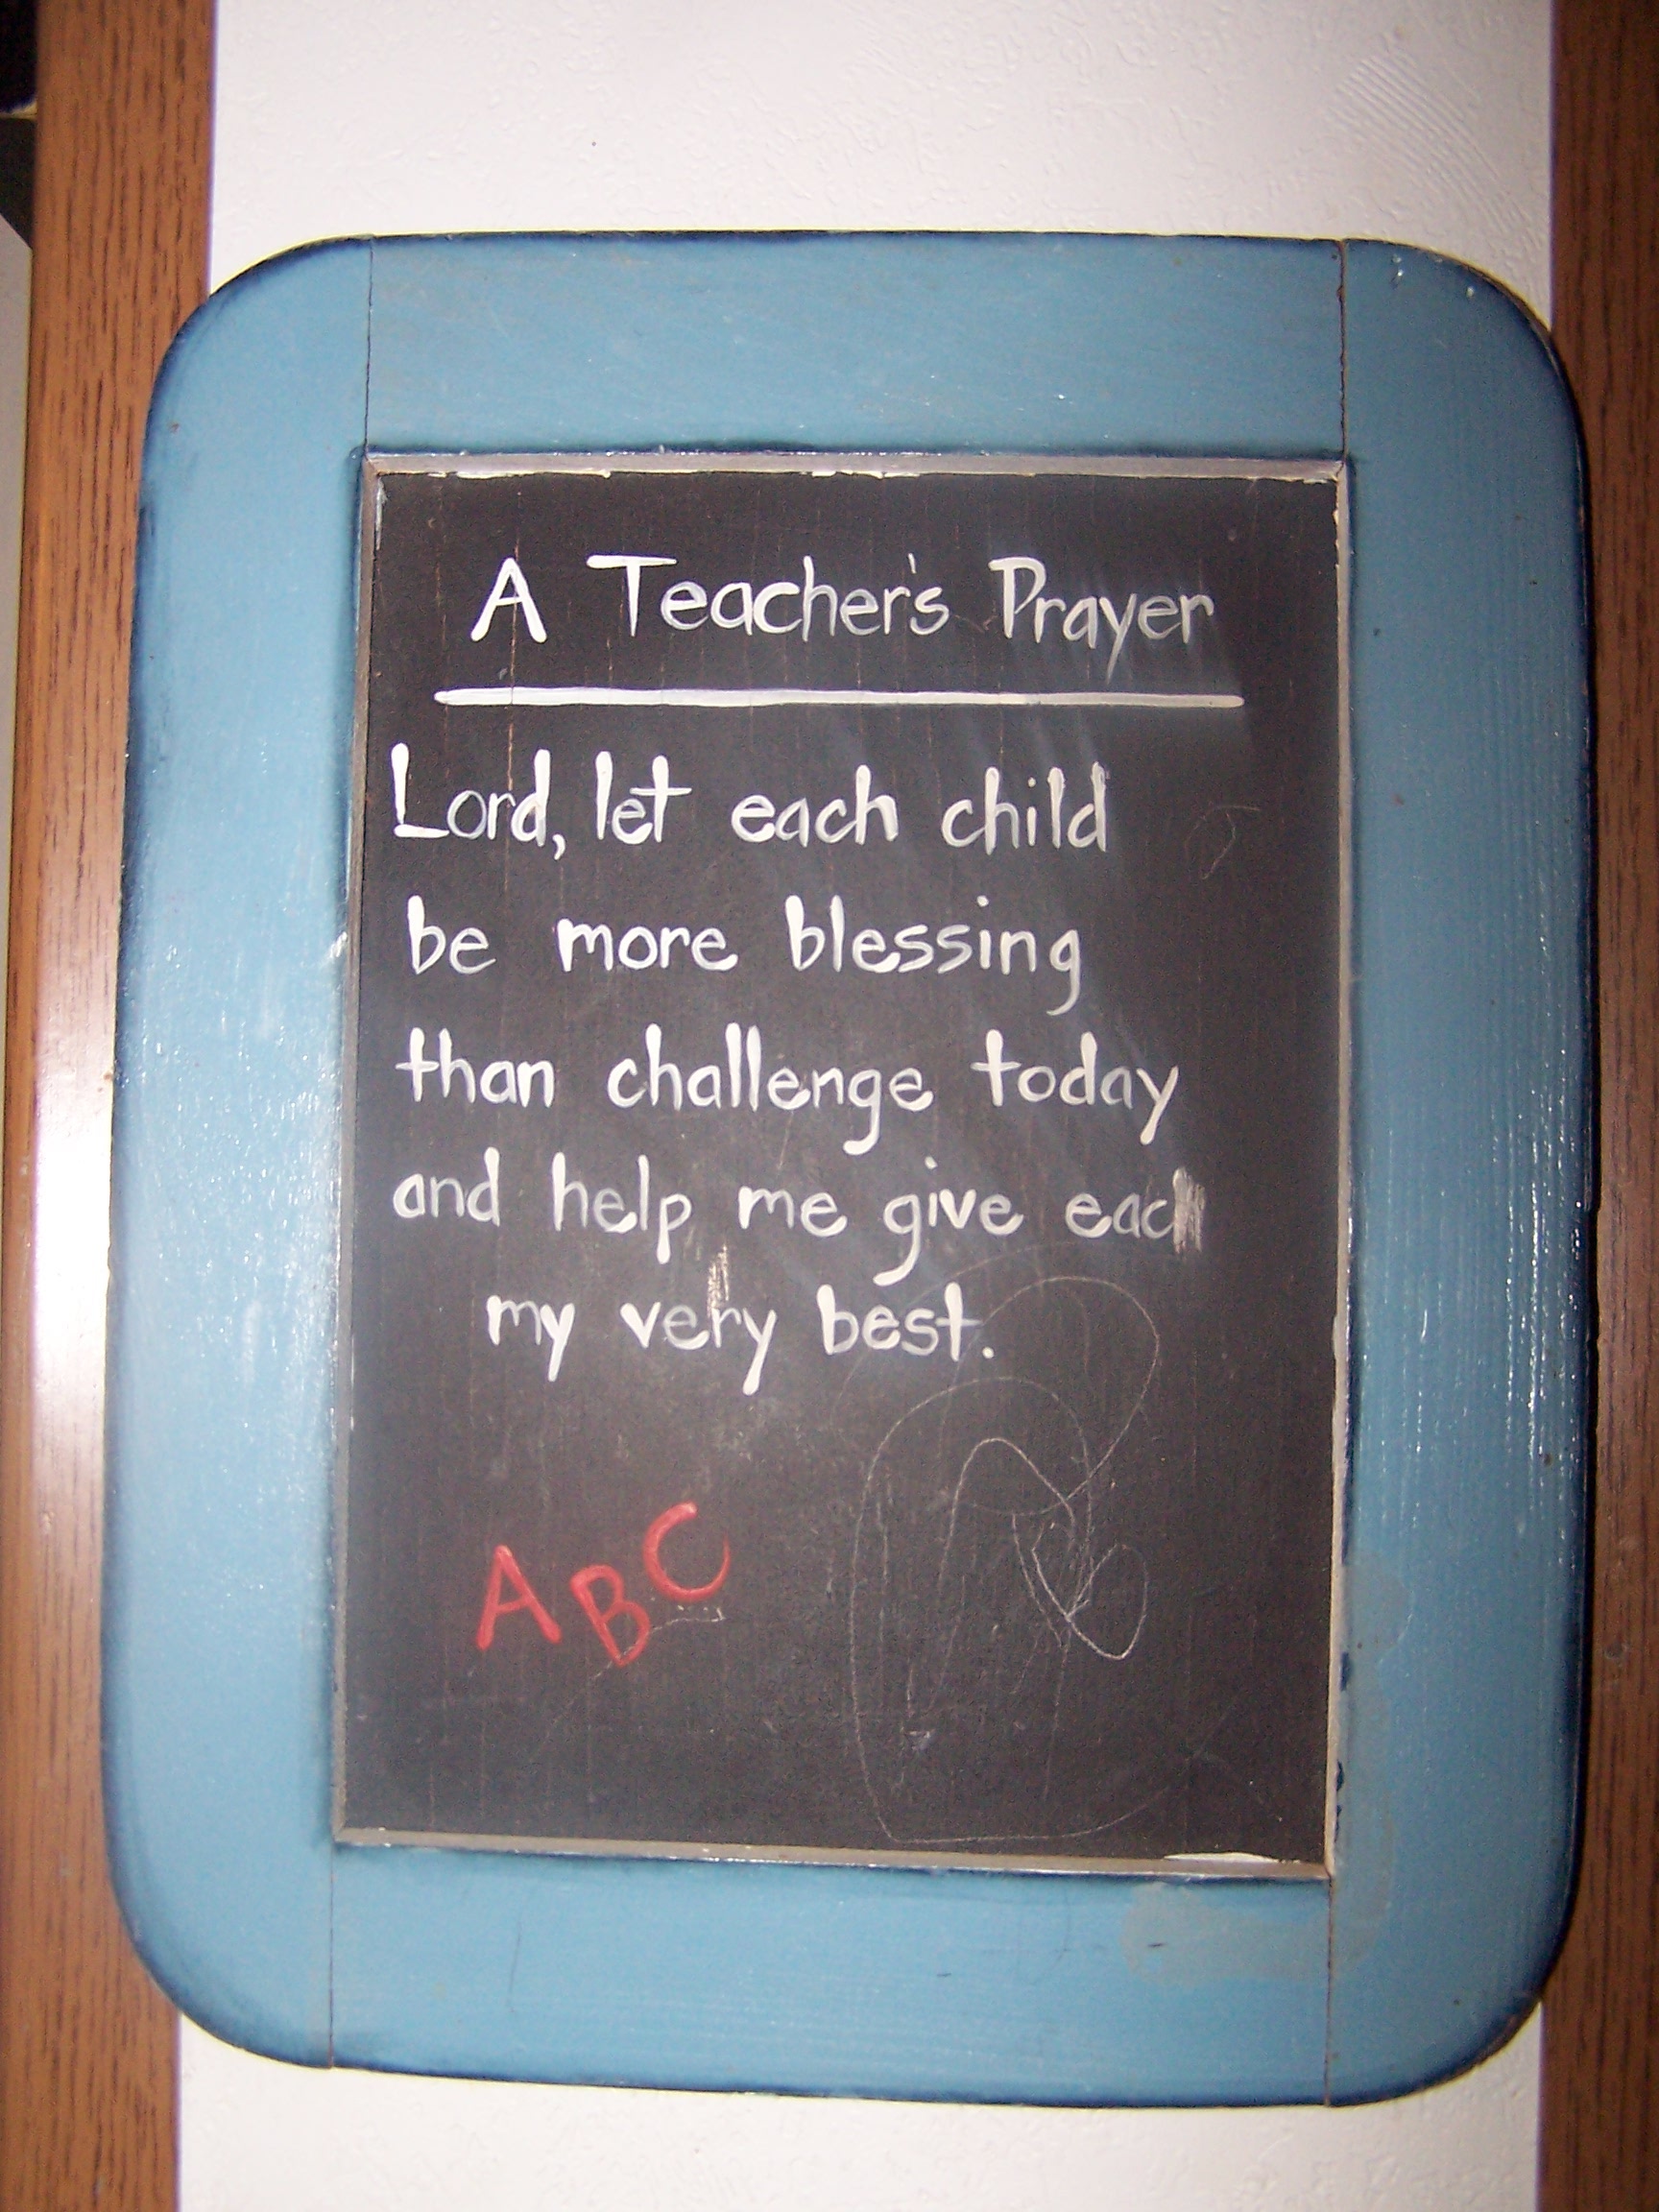 A Teacher's Prayer
Lord, let each child
be more blessing
than challenge today
and help me give each
my very best.
A B C